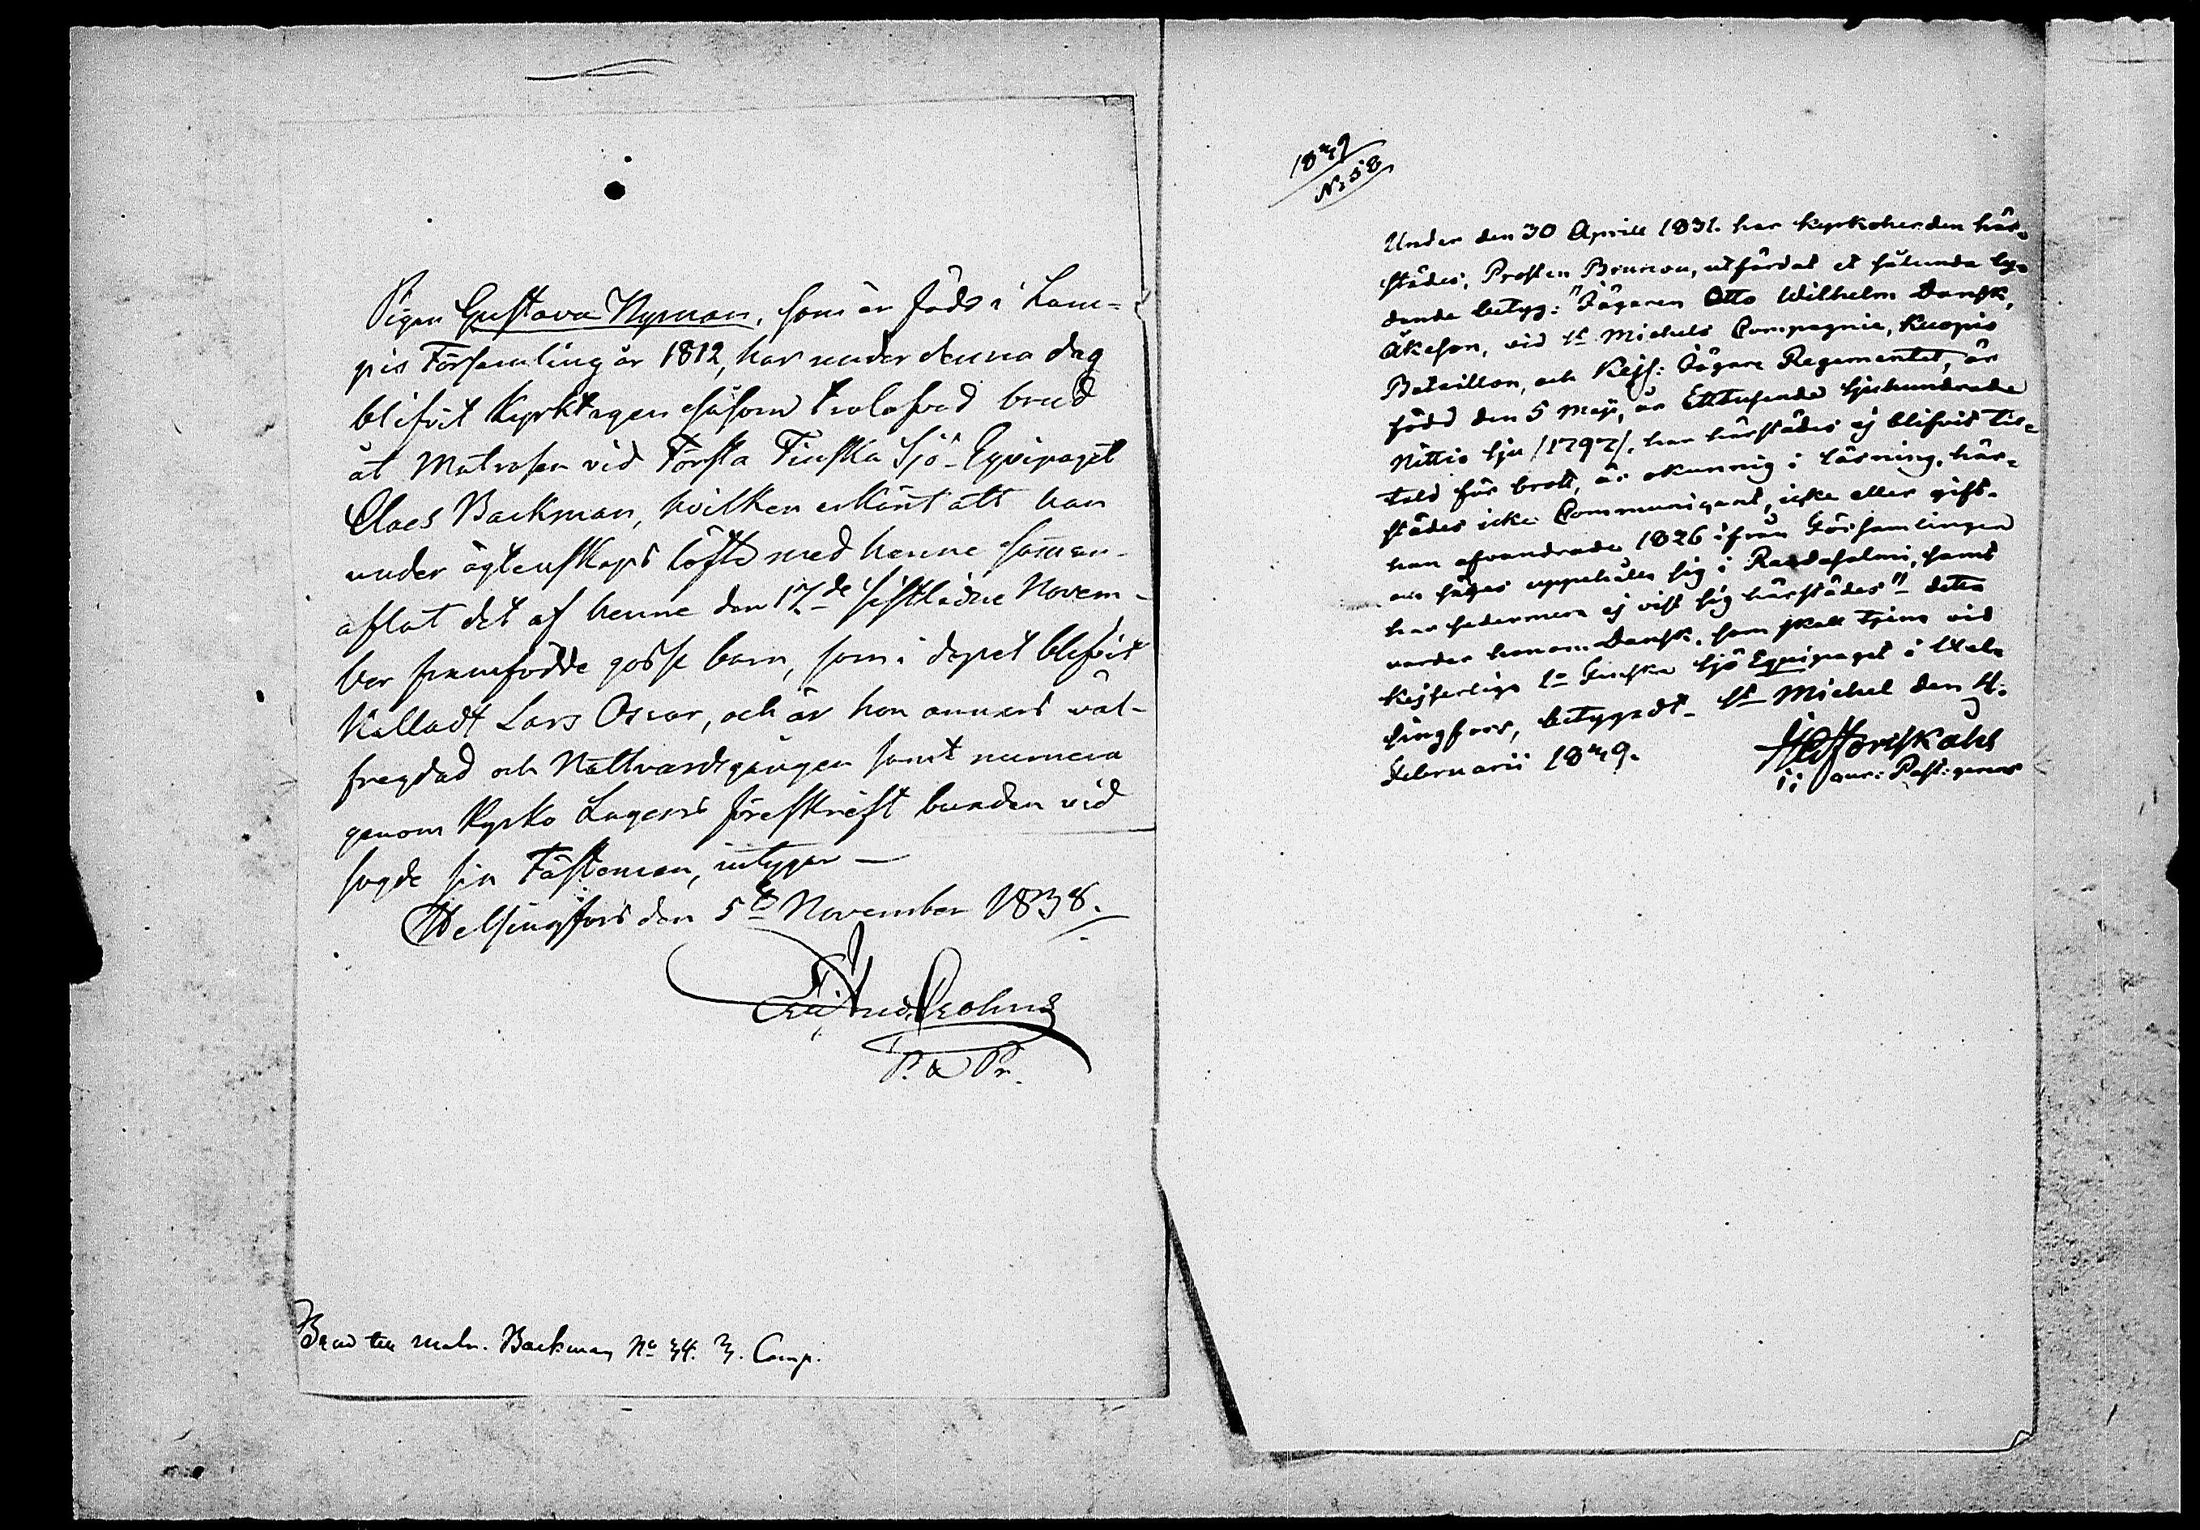 Pigan Gustava Nyman, som är född i Lam-
pis Församling år 1812, har under denna dag
blifvit Kyrktagen såsom trolofvad brud
åt Matrosen vid Första Finska Sjö-Equipaget
Claes Backman, hvilken erkänt att han
under ägtenskaps löfte med henne samman-
aflat det af henne den 17de sistledne Novem-
ber framfödde gosse barn, som i dopet blifvit
Kalladt Lars Oscar, och är hon annars väl-
fregdad och Nattvardsgången samt numera
genom Kyrko Lagens föreskrift bunden vid
sagde sin Fästeman, intygar —
Helsingfors den 5te November 1838.
Crohns
P. & Pr.
Brud till matr. Backman No 34. 3. Comp.
1849
No 58
Under den 30 Aprill 1831. har kyrkoherden här-
städes, Prosten Brunou, utfärdat et sålunda ly-
dande betyg: "Jägaren Otto Wilhelm Dansk,
Åkeson, vid St Michels Compagnie, Kuopio
Bataillon, och Kejs: Jägare Regementet, är
född den 5 Maji, år Ettusende sjuhundrade
Nittio sju /1797/. har härstädes ej blifvit til-
tald för brott, är okunnig i läsning, här-
städes icke Communigant, icke eller gift.
han afvandrade 1826 ifrån Församlingen
och säges uppehålla sig i Randasalmi, samt
har sedermera ej vist sig härstädes" detta
varder honom Dansk, som skall tjena vid
Kejserliga 1a Finska Sjö Equipaget i Hel-
singfors, betygadt. St Michel den 4.
Februarii 1849.
Forsskåhl